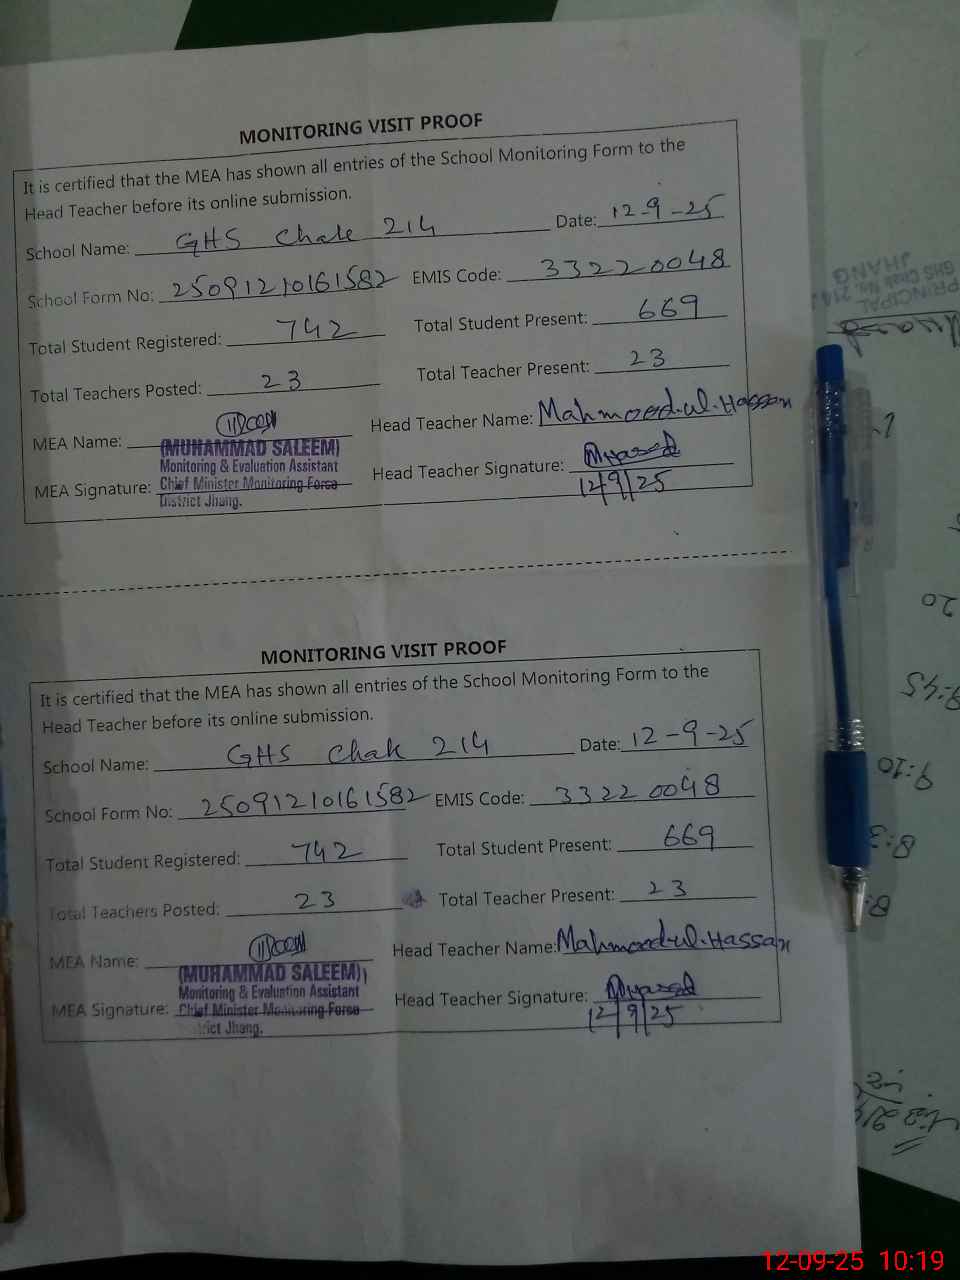 MONITORING VISIT PROOF
It is certified that the MEA has shown all entries of the School Monitoring Form to the
Head Teacher before its online submission.
School Name: GHS Chak 214 Date: 12-9-25
School Form No: 25091210161582 EMIS Code: 33220048
Total Student Registered: 742 Total Student Present: 669
Total Teachers Posted: 23 Total Teacher Present: 23
MEA Name: Head Teacher Name: Mahmood-ul-Hassan
(MUHAMMAD SALEEM)
Monitoring & Evaluation Assistant
MEA Signature: Chief Minister Monitoring Force Head Teacher Signature:
District Jhang. 12/9/25
MONITORING VISIT PROOF
It is certified that the MEA has shown all entries of the School Monitoring Form to the
Head Teacher before its online submission.
School Name: GHS Chak 214 Date: 12-9-25
School Form No: 25091210161582 EMIS Code: 33220048
Total Student Registered: 742 Total Student Present: 669
Total Teachers Posted: 23 Total Teacher Present: 23
MEA Name: Head Teacher Name: Mahmood-ul-Hassan
(MUHAMMAD SALEEM)
Monitoring & Evaluation Assistant
MEA Signature: Chief Minister Monitoring Force Head Teacher Signature:
trict Jhang. 12/9/25
PRINCIPAL
GHS Chak No. 214
JHANG
20
9:45
9:10
12-09-25 10:19